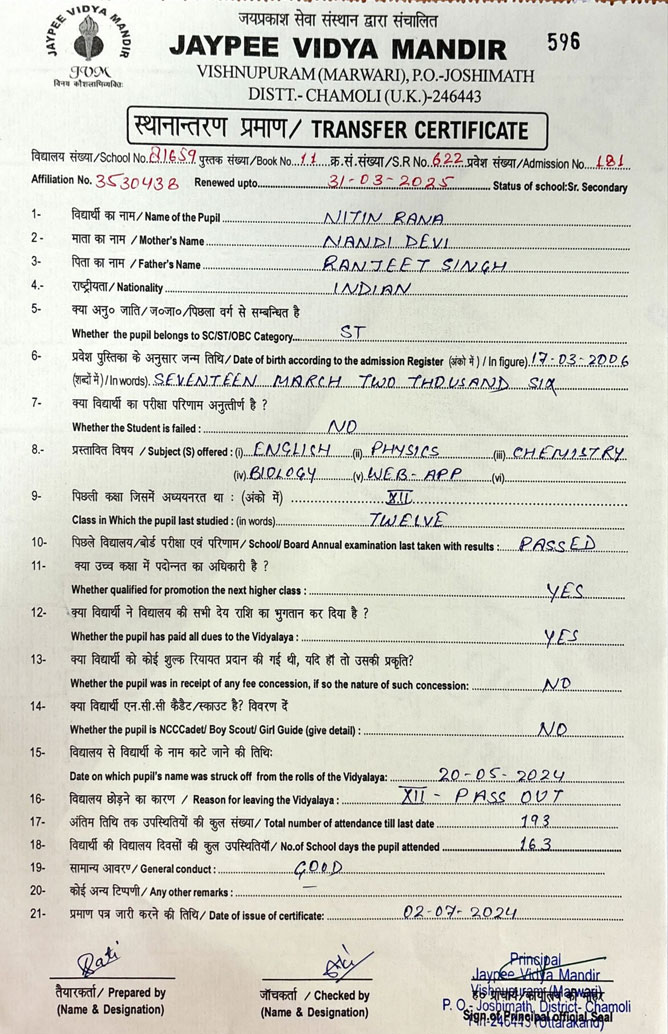 JAYPEE VIDYA MANDIR
JVM
जयप्रकाश सेवा संस्थान द्वारा संचालित
JAYPEE VIDYA MANDIR 596
VISHNUPURAM (MARWARI), P.O.-JOSHIMATH
DISTT.- CHAMOLI (U.K.)-246443
स्थानान्तरण प्रमाण/ TRANSFER CERTIFICATE
विद्यालय संख्या/School No. 81659 पुस्तक संख्या/Book No. 11 क्र.सं.संख्या/S.R No. 622 प्रवेश संख्या/Admission No. 181
Affiliation No. 3530438 Renewed upto 31-03-2025 Status of school:Sr. Secondary
1- विद्यार्थी का नाम/ Name of the Pupil NITIN RANA
2 - माता का नाम / Mother's Name NANDI DEVI
3- पिता का नाम / Father's Name RANJEET SINGH
4.- राष्ट्रीयता/ Nationality INDIAN
5- क्या अनु० जाति/ ज०जा०/पिछला वर्ग से सम्बन्धित है
Whether the pupil belongs to SC/ST/OBC Category... ST
6- प्रवेश पुस्तिका के अनुसार जन्म तिथि/ Date of birth according to the admission Register (अंको में) / In figure). 17-03-2006
(शब्दों में) / In words). SEVENTEEN MARCH TWO THOUSAND SIX
7- क्या विद्यार्थी का परीक्षा परिणाम अनुत्तीर्ण है ?
Whether the Student is failed : NO
8.- प्रस्तावित विषय / Subject (S) offered : (i) ENGLISH (ii) PHYSICS (iii) CHEMISTRY
(iv) BIOLOGY (v) WEB-APP (vi)
9- पिछली कक्षा जिसमें अध्ययनरत था : (अंको में) XII
Class in Which the pupil last studied : (in words) TWELVE
10- पिछले विद्यालय/बोर्ड परीक्षा एवं परिणाम/ School/ Board Annual examination last taken with results : PASSED
11- क्या उच्च कक्षा में पदोन्नत का अधिकारी है ?
Whether qualified for promotion the next higher class : YES
12- क्या विद्यार्थी ने विद्यालय की सभी देय राशि का भुगतान कर दिया है ?
Whether the pupil has paid all dues to the Vidyalaya : YES
13- क्या विद्यार्थी को कोई शुल्क रियायत प्रदान की गई थी, यदि हाँ तो उसकी प्रकृति?
Whether the pupil was in receipt of any fee concession, if so the nature of such concession: NO
14- क्या विद्यार्थी एन.सी.सी कैडैट/स्काउट है? विवरण दें
Whether the pupil is NCCCadet/ Boy Scout/ Girl Guide (give detail) : NO
15- विद्यालय से विद्यार्थी के नाम काटे जाने की तिथिः
Date on which pupil's name was struck off from the rolls of the Vidyalaya: 20-05-2024
16- विद्यालय छोड़ने का कारण / Reason for leaving the Vidyalaya : XII - PASS OUT
17- अंतिम तिथि तक उपस्थितियों की कुल संख्या/ Total number of attendance till last date 193
18- विद्यार्थी की विद्यालय दिवसों की कुल उपस्थितियाँ/ No.of School days the pupil attended 163
19- सामान्य आवरण/ General conduct : GOOD
20- कोई अन्य टिप्पणी/ Any other remarks : —
21- प्रमाण पत्र जारी करने की तिथि/ Date of issue of certificate: 02-07-2024
Principal
Jaypee Vidya Mandir
Vishnupuram (Marwari)
P. O.- Joshimath, District- Chamoli
246443 (Uttarakand)
तैयारकर्ता/ Prepared by
(Name & Designation)
जाँचकर्ता / Checked by
(Name & Designation)
ह० प्राचार्य/कार्यालय की मोहर
Sign of Principal official Seal